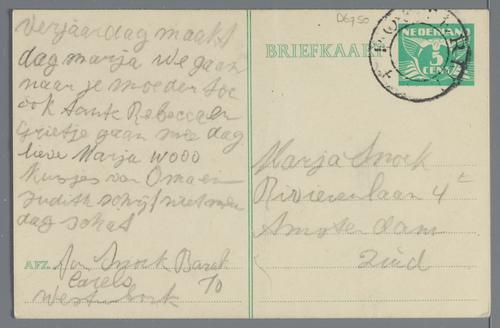 D6750
NEDERLAND
5
CENT
BRIEFKAART
verjaardag maakt
dag marja we gaan
naar je moeder toe
ook tante Rebecca en
Grietje gaan mee dag
lieve Marja 1000
kusjes van Oma en
judith schrijf niet meer
dag schat
AFZ. Snoek Barak
Carels 70
Westerbork
Marja Snoek
Rivierenlaan 4
Amsterdam
Zuid